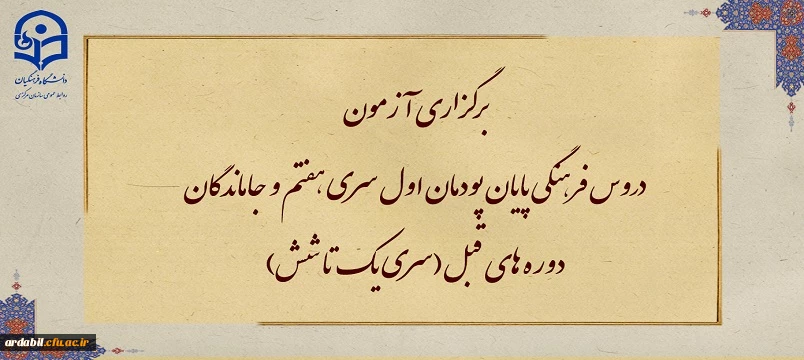 دانشگاه فرهنگیان
روابط عمومی سازمان مرکزی
برگزاری آزمون
دروس فرهنگی پایان پودمان اول سری هفتم و جاماندگان
دوره های قبل (سری یک تا شش)
ardabil.cfu.ac.ir